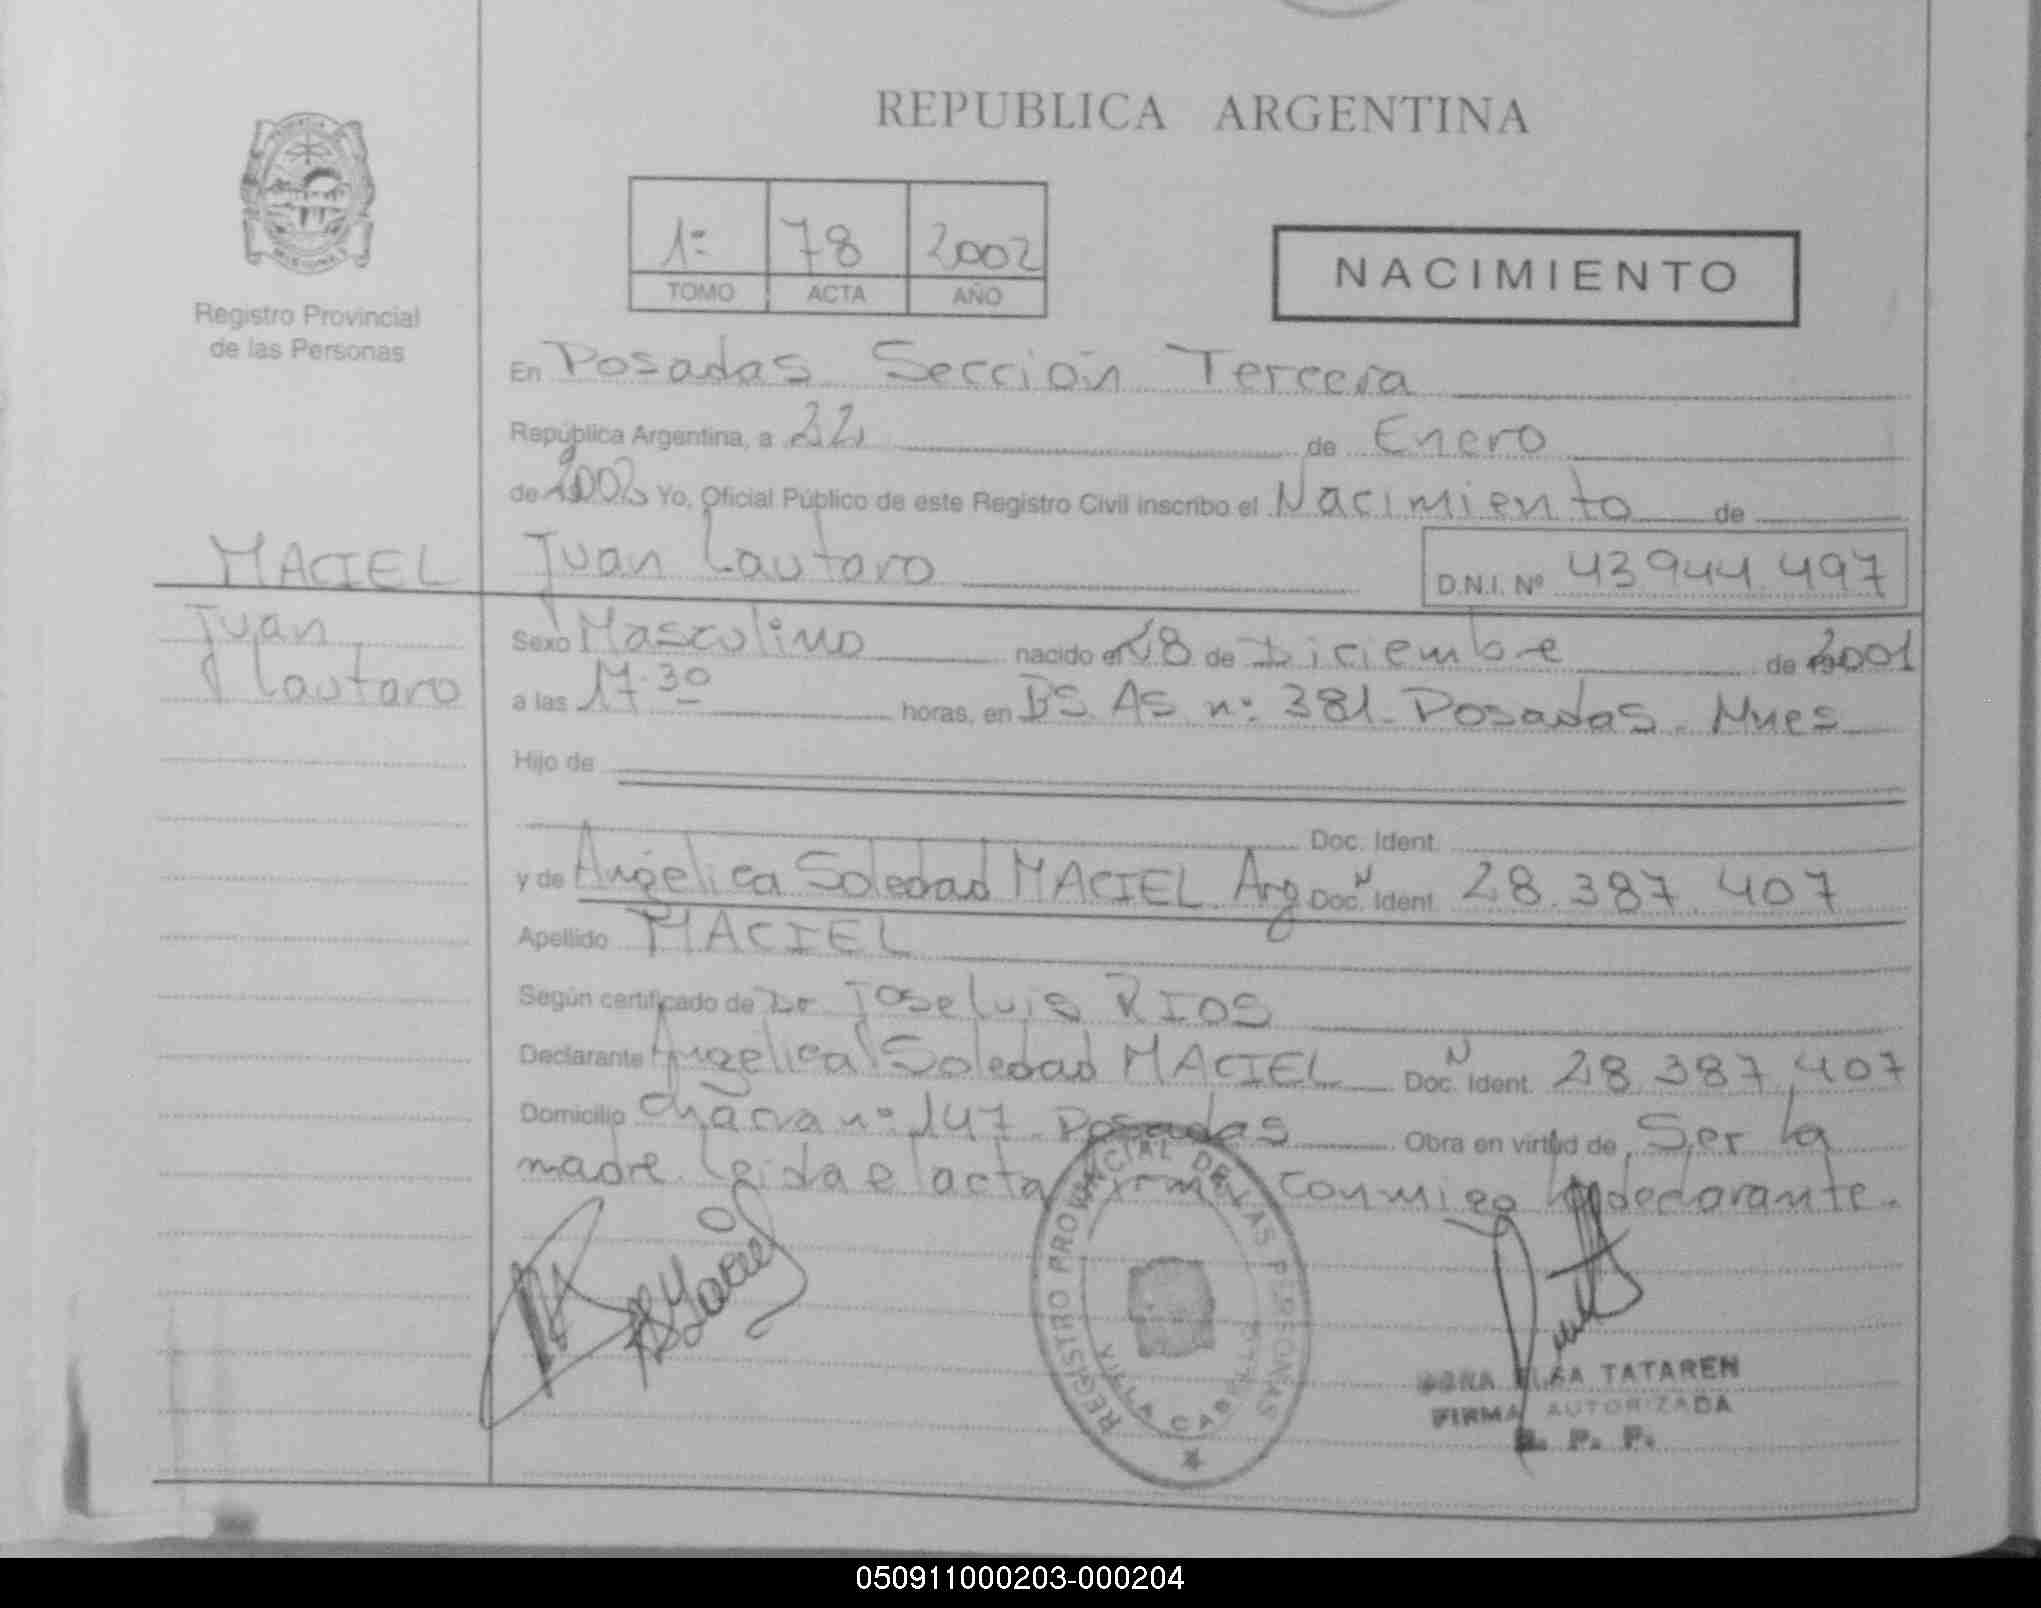 REPUBLICA ARGENTINA
1º 78 2002
TOMO ACTA AÑO
NACIMIENTO
Registro Provincial
de las Personas
En Posadas Sección Tercera
República Argentina, a 22 de Enero
de 2002 Yo, Oficial Público de este Registro Civil inscribo el Nacimiento de
MACIEL Juan Lautaro D.N.I. Nº 43944.497
Juan
Lautaro
Sexo Masculino nacido el 28 de Diciembre de 2001
a las 17.30 horas, en BS. AS nº 381. Posadas. Mnes
Hijo de
Doc. Ident.
y de Angélica Soledad MACIEL Arg Doc. Ident. 28.387.407
Apellido MACIEL
Según certificado de Dr. Jose Luis RIOS
Declarante Angelica Soledad MACIEL Doc. Ident. 28.387.407
Domicilio Chacra nº 147 Posadas Obra en virtud de Ser la
madre. Leida el acta firma conmigo la declarante.
REGISTRO PROVINCIAL DE LAS PERSONAS
ELSA TATAREN
FIRMA AUTORIZADA
R. P. P.
050911000203-000204